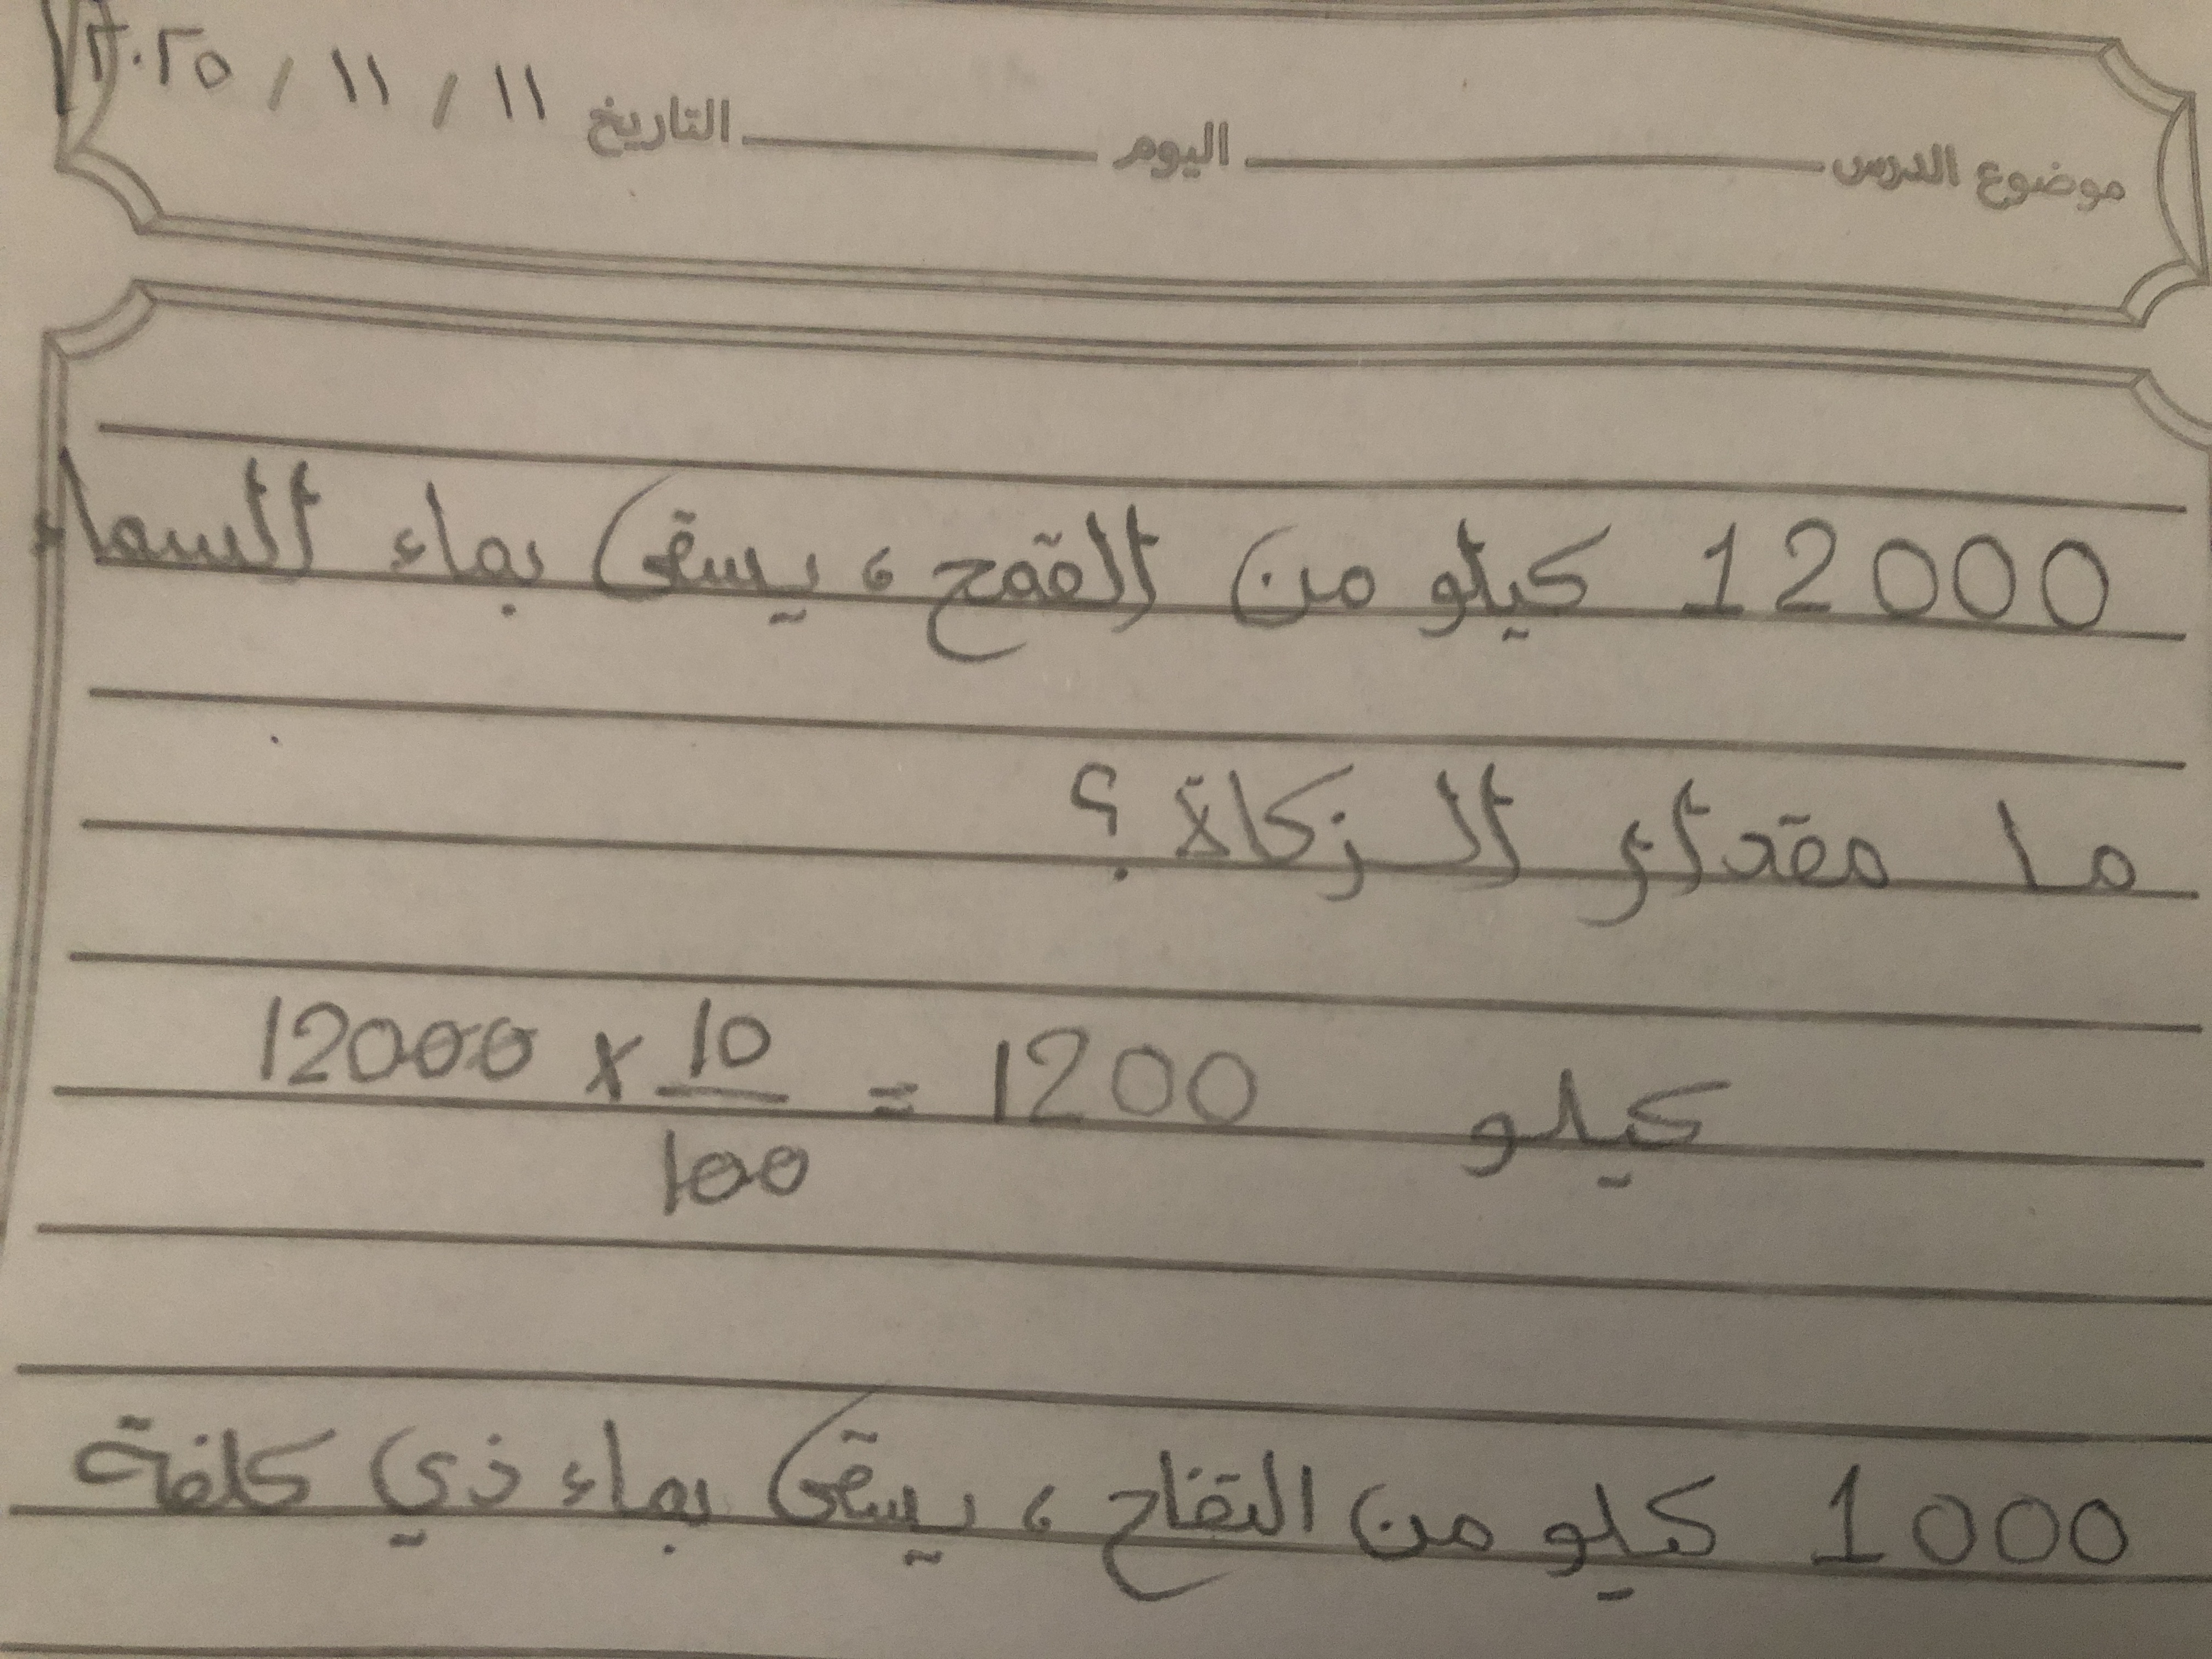 موضوع الدرس اليوم التاريخ ١١ / ١١ / ٢٠٢٥
12000 كيلو من القمح، يسقى بماء السماء
ما مقدار الزكاة؟
12000 x 10/100 = 1200 كيلو
1000 كيلو من التفاح، يسقى بماء ذي كلفة